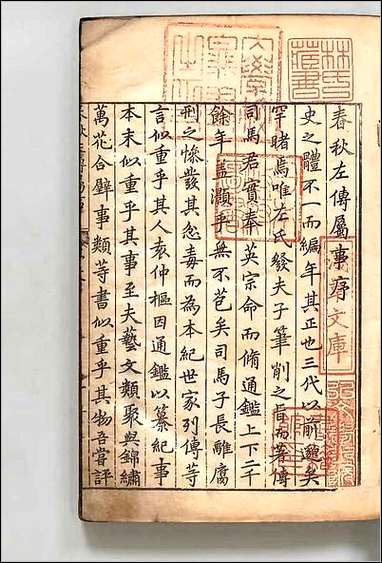 春秋左傳屬事序
史之體不一而編年其正也三代以前邈矣
罕睹焉唯左氏發夫子筆削之旨而著傳
司馬君實奉英宗命而脩通鑑上下三千
餘年蓋灝乎無不苞矣司馬子長離腐
刑之慘發其忿毒而為本紀世家列傳等
言似重乎其人袁仲樞因通鑑以纂紀事
本末似重乎其事至夫藝文類聚與錦繡
萬花合璧事類等書似重乎其物吾嘗評
林氏藏書
文庫